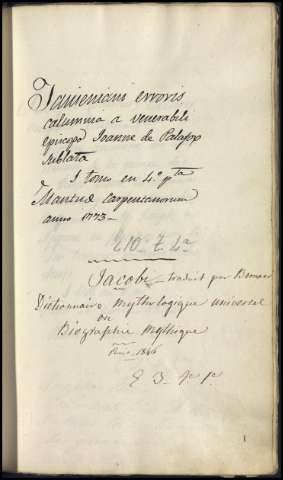 Janseniani erroris
calumnia a venerabili
episcopo Joanne de Palafox
sublata
I tomo en 4.º pta
Mantuæ Carpentanorum
anno 1773—
210. Z. 4º
Jacobi— traduit par Bernard
Dictionnaire mythologique universel
ou
Biographie mythique
Paris 1846
E 3
1